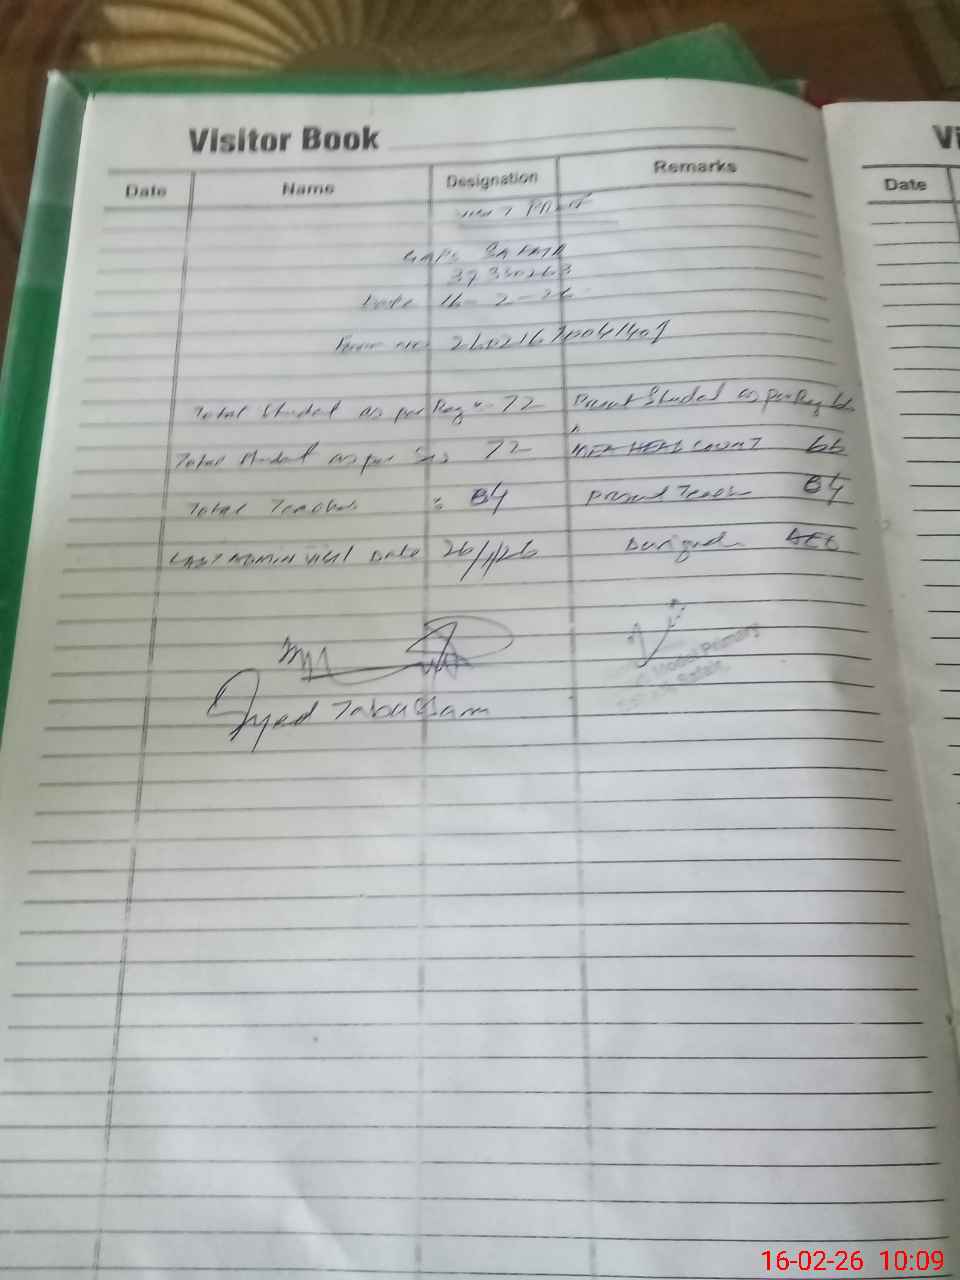 Visitor Book
Vi
Date Name Designation Remarks
Date
37330263
Date 16-2-26
Form no: 26021670041401
Total Student as per Reg :- 72 Present Student as per Reg 66
Total Student as per Sis 72 HEAD COUNT 66
Total Teacher : 04 Present Teacher 04
LAST ADMIN Visit Date 26/1/26 AEO
Syed Tabussam
Model Primary
16-02-26 10:09